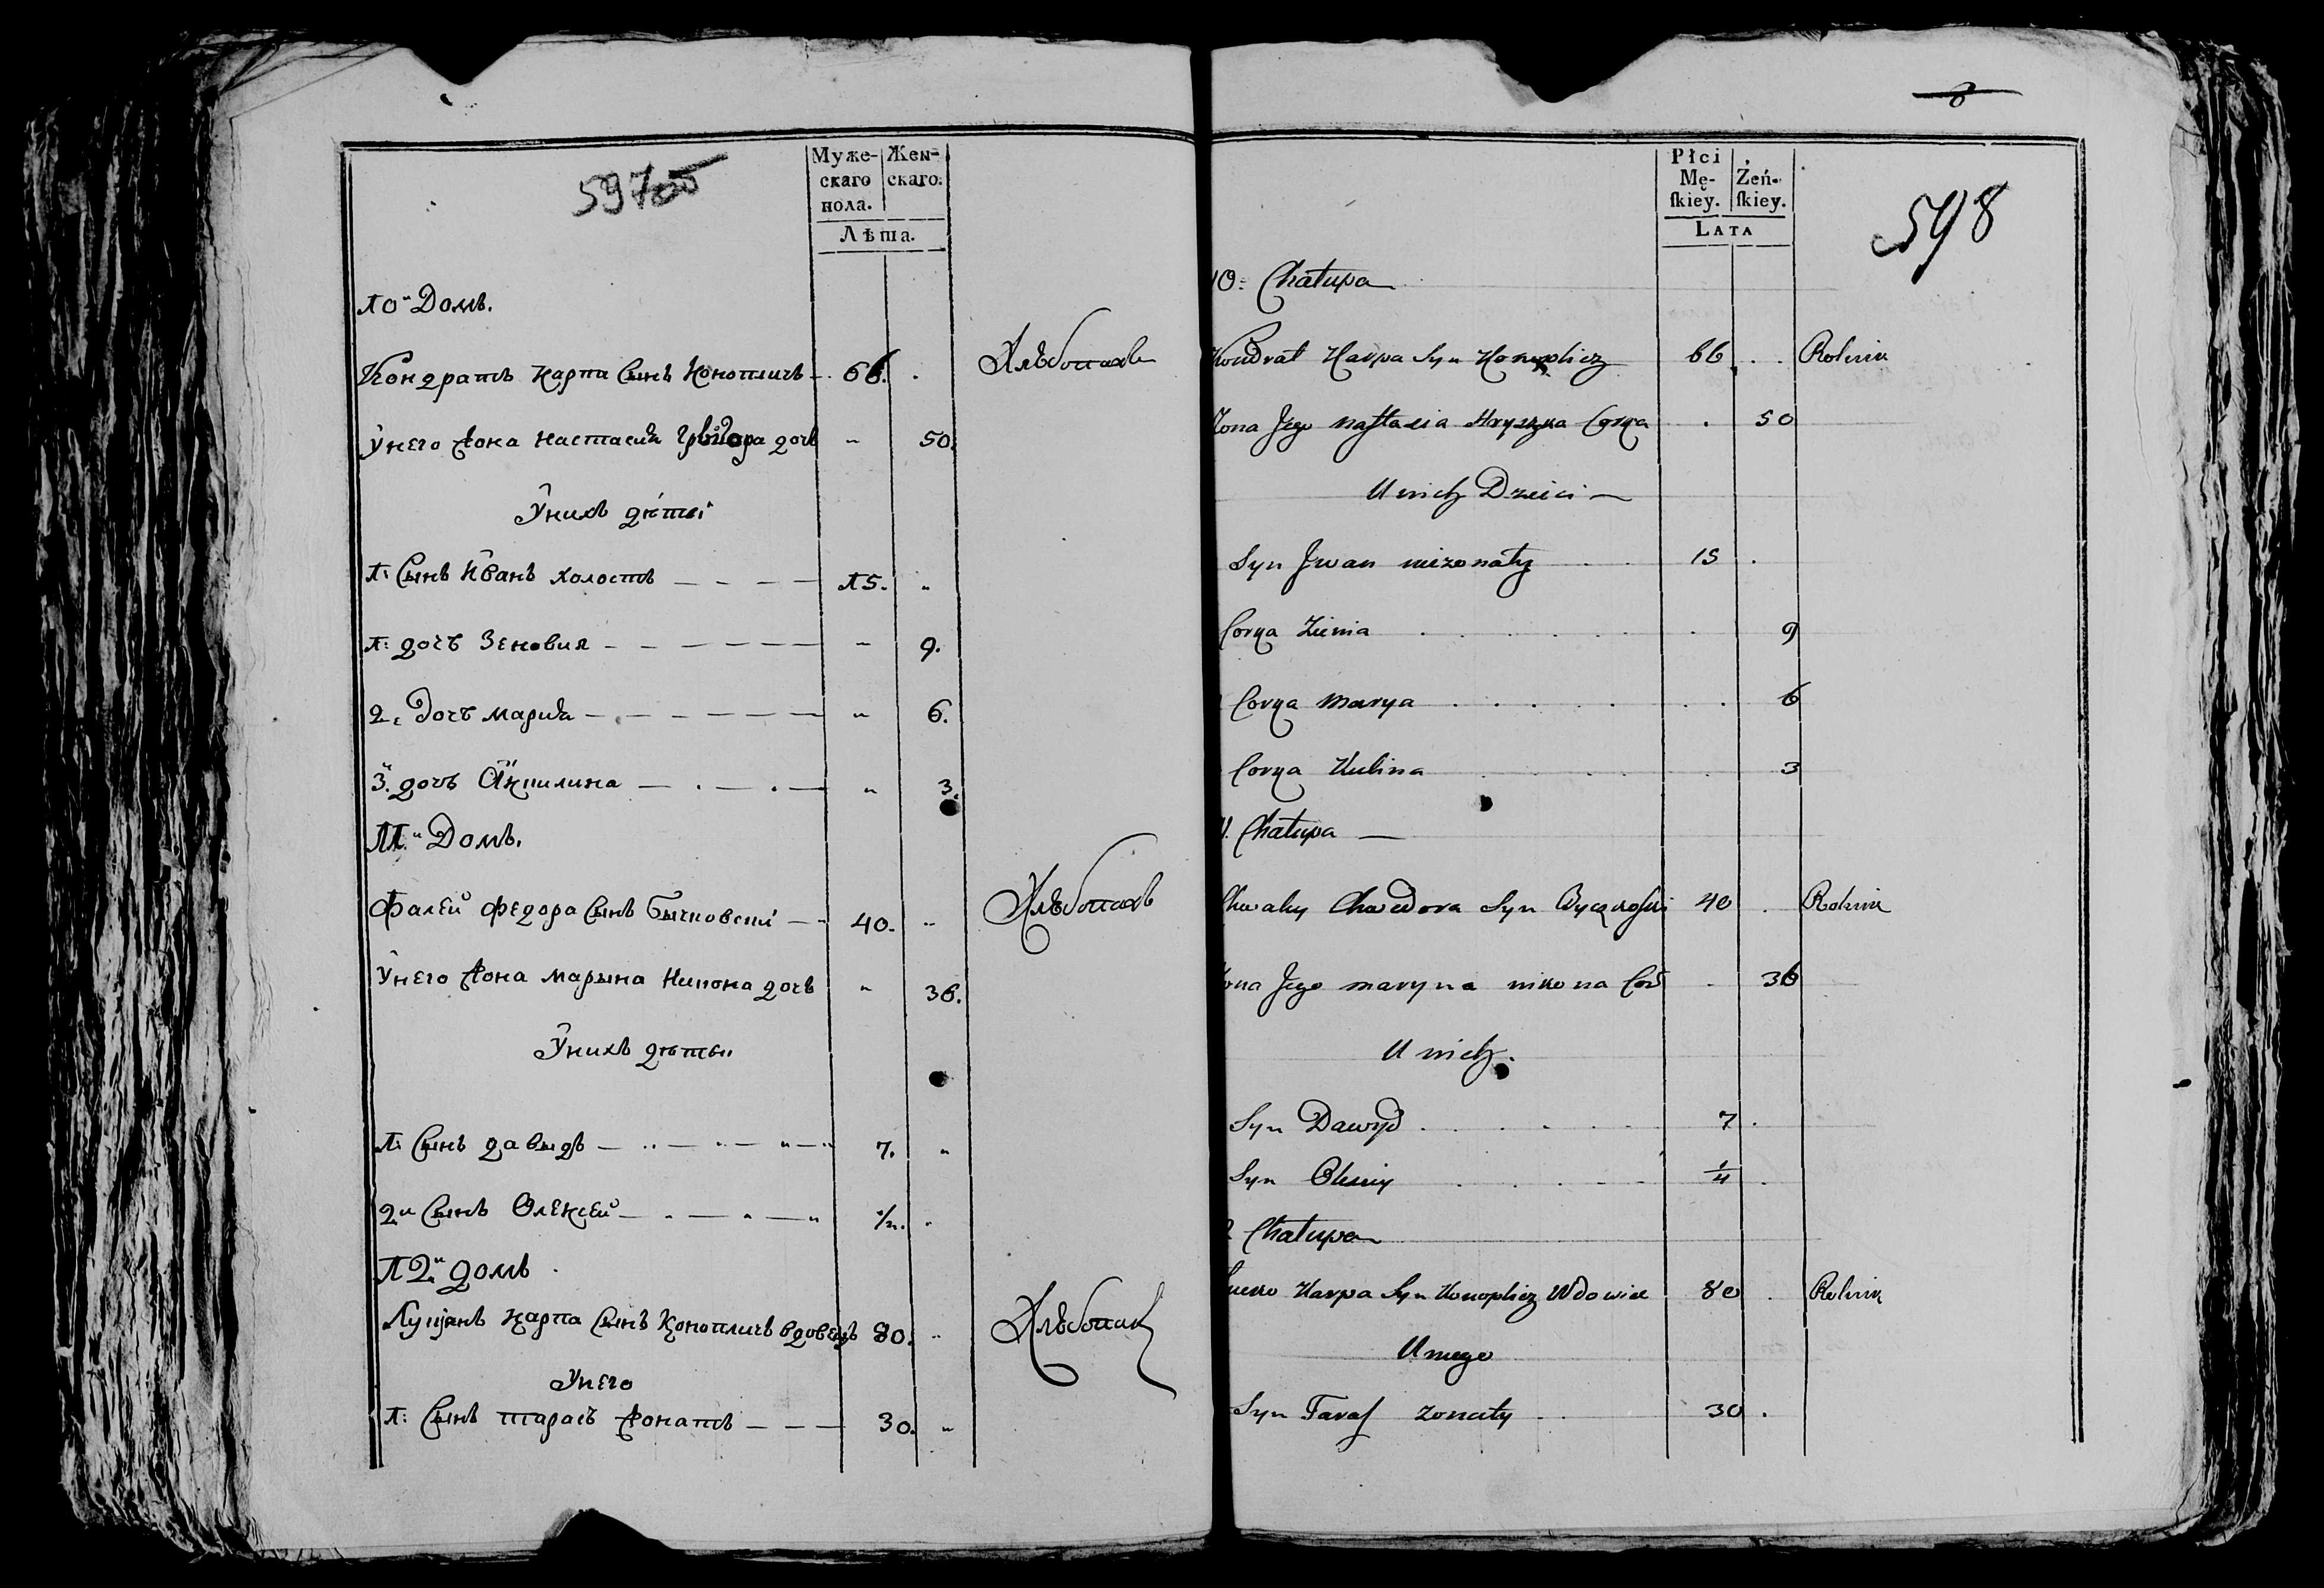 597об
Муже-
скаго
пола.
Жен-
скаго.
Лѣта.
10й Домъ.
Кондратъ Карпа Сынъ Конопличъ 66.
Хлѣбопашъ
Унего Жона Настасия дочъ 50.
Унихъ дѣтыи
1й Сынъ Иванъ холостъ 15.
1я дочъ Зеновия 9.
2я Дочъ Мария 6.
3я дочъ Акилина 3.
11й Домъ.
Фалей Федора Сынъ Бычковский 40.
Хлѣбопашъ
Унего Жона Марына Никона дочъ 36.
Унихъ дѣтыи
1й Сынъ Давыдъ 7.
2й Сынъ Олексей
12й домъ
Луцянъ Карпа Сынъ Конопличъ вдовецъ 80.
Хлѣбопаш
Унего
1й Сынъ Тарасъ Жонатъ 30.
8
598
Płci
Mę-
ſkiey.
Żeń-
ſkiey.
LATA
10. Chałupa
Kondrat Karpa Syn Konoplicz 66 Rolnik
Żona Jego Nastasia Hryszka Corka 50
U nich Dzieci
Syn Jwan nieżonaty 15
Corka Zienia 9
Corka Marya 6
Corka Kulina 3
11. Chałupa
Chwaley Chwedora Syn Byczkoski 40 Rolnik
Żona Jego Maryna Nikona Cor 36
U nich.
Syn Dawyd 7
Syn Olexiy 1/4
2 Chałupa
Karpa Syn Konoplicz Wdowiec 80 Rolnik
U niego
Syn Taras żonaty 30